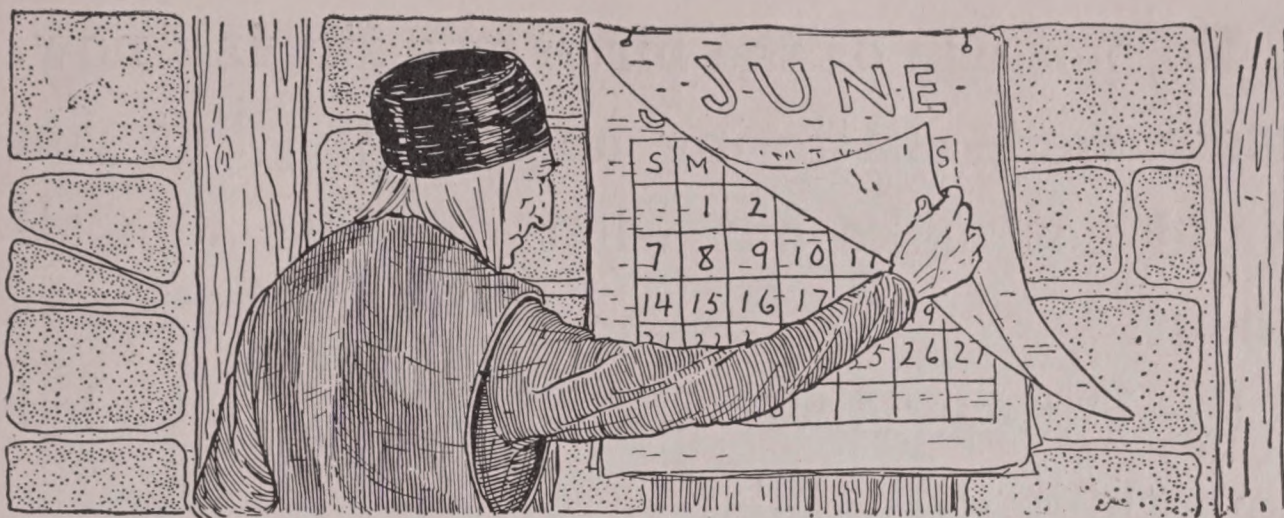 JUNE
S M S
1 2
7 8 9 10
14 15 16 17 9
21 22 25 26 27